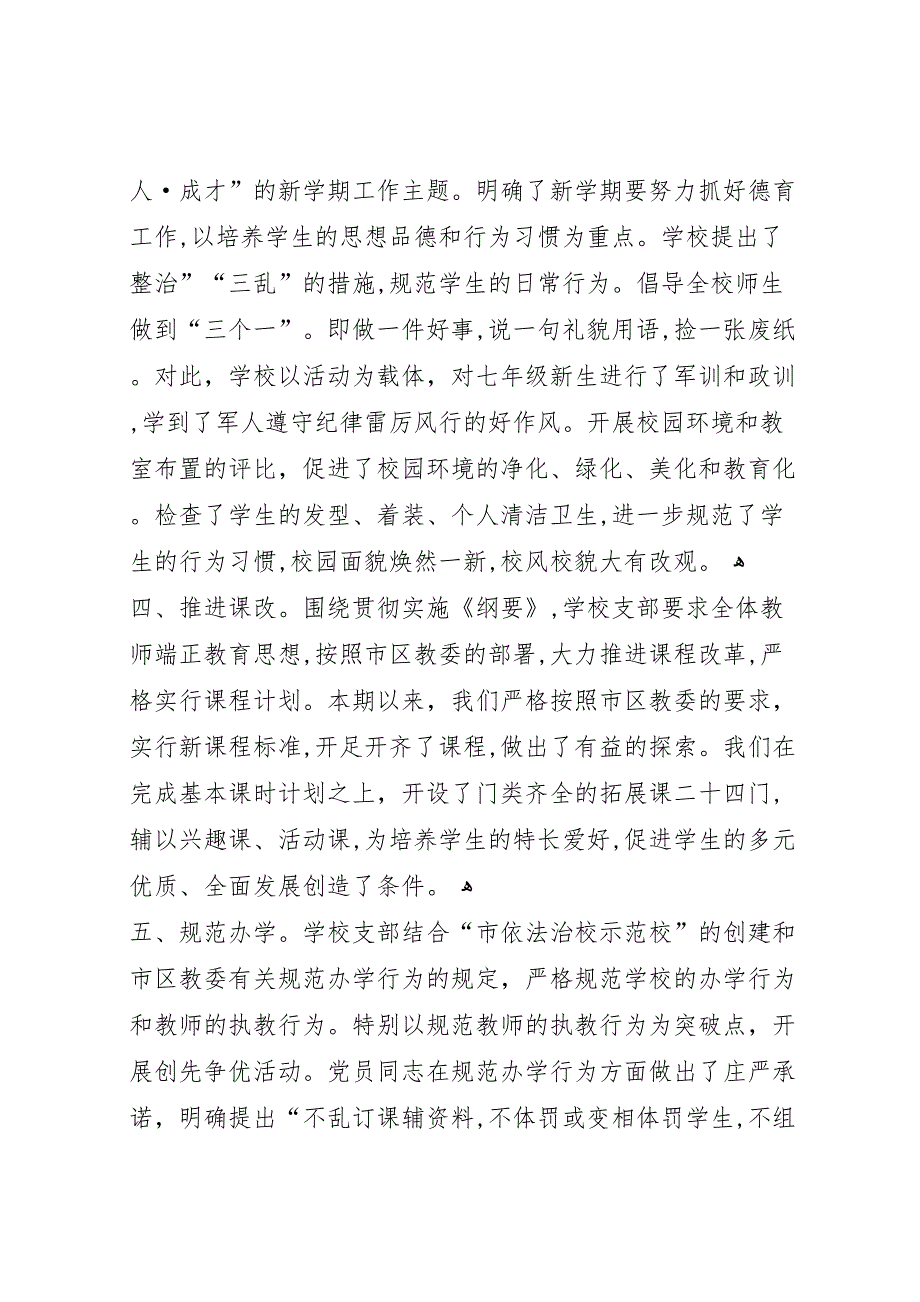 人·成才”的新学期工作主题。明确了新学期要努力抓好德育
工作,以培养学生的思想品德和行为习惯为重点。学校提出了
整治”“三乱”的措施,规范学生的日常行为。倡导全校师生
做到“三个一”。即做一件好事,说一句礼貌用语,捡一张废纸
。对此，学校以活动为载体，对七年级新生进行了军训和政训
,学到了军人遵守纪律雷厉风行的好作风。开展校园环境和教
室布置的评比，促进了校园环境的净化、绿化、美化和教育化
。检查了学生的发型、着装、个人清洁卫生,进一步规范了学
生的行为习惯,校园面貌焕然一新,校风校貌大有改观。 ﻫ
四、推进课改。围绕贯彻实施《纲要》,学校支部要求全体教
师端正教育思想,按照市区教委的部署,大力推进课程改革,严
格实行课程计划。本期以来，我们严格按照市区教委的要求，
实行新课程标准,开足开齐了课程,做出了有益的探索。我们在
完成基本课时计划之上，开设了门类齐全的拓展课二十四门,
辅以兴趣课、活动课,为培养学生的特长爱好,促进学生的多元
优质、全面发展创造了条件。 ﻫ
五、规范办学。学校支部结合“市依法治校示范校”的创建和
市区教委有关规范办学行为的规定，严格规范学校的办学行为
和教师的执教行为。特别以规范教师的执教行为为突破点，开
展创先争优活动。党员同志在规范办学行为方面做出了庄严承
诺，明确提出“不乱订课辅资料,不体罚或变相体罚学生,不组